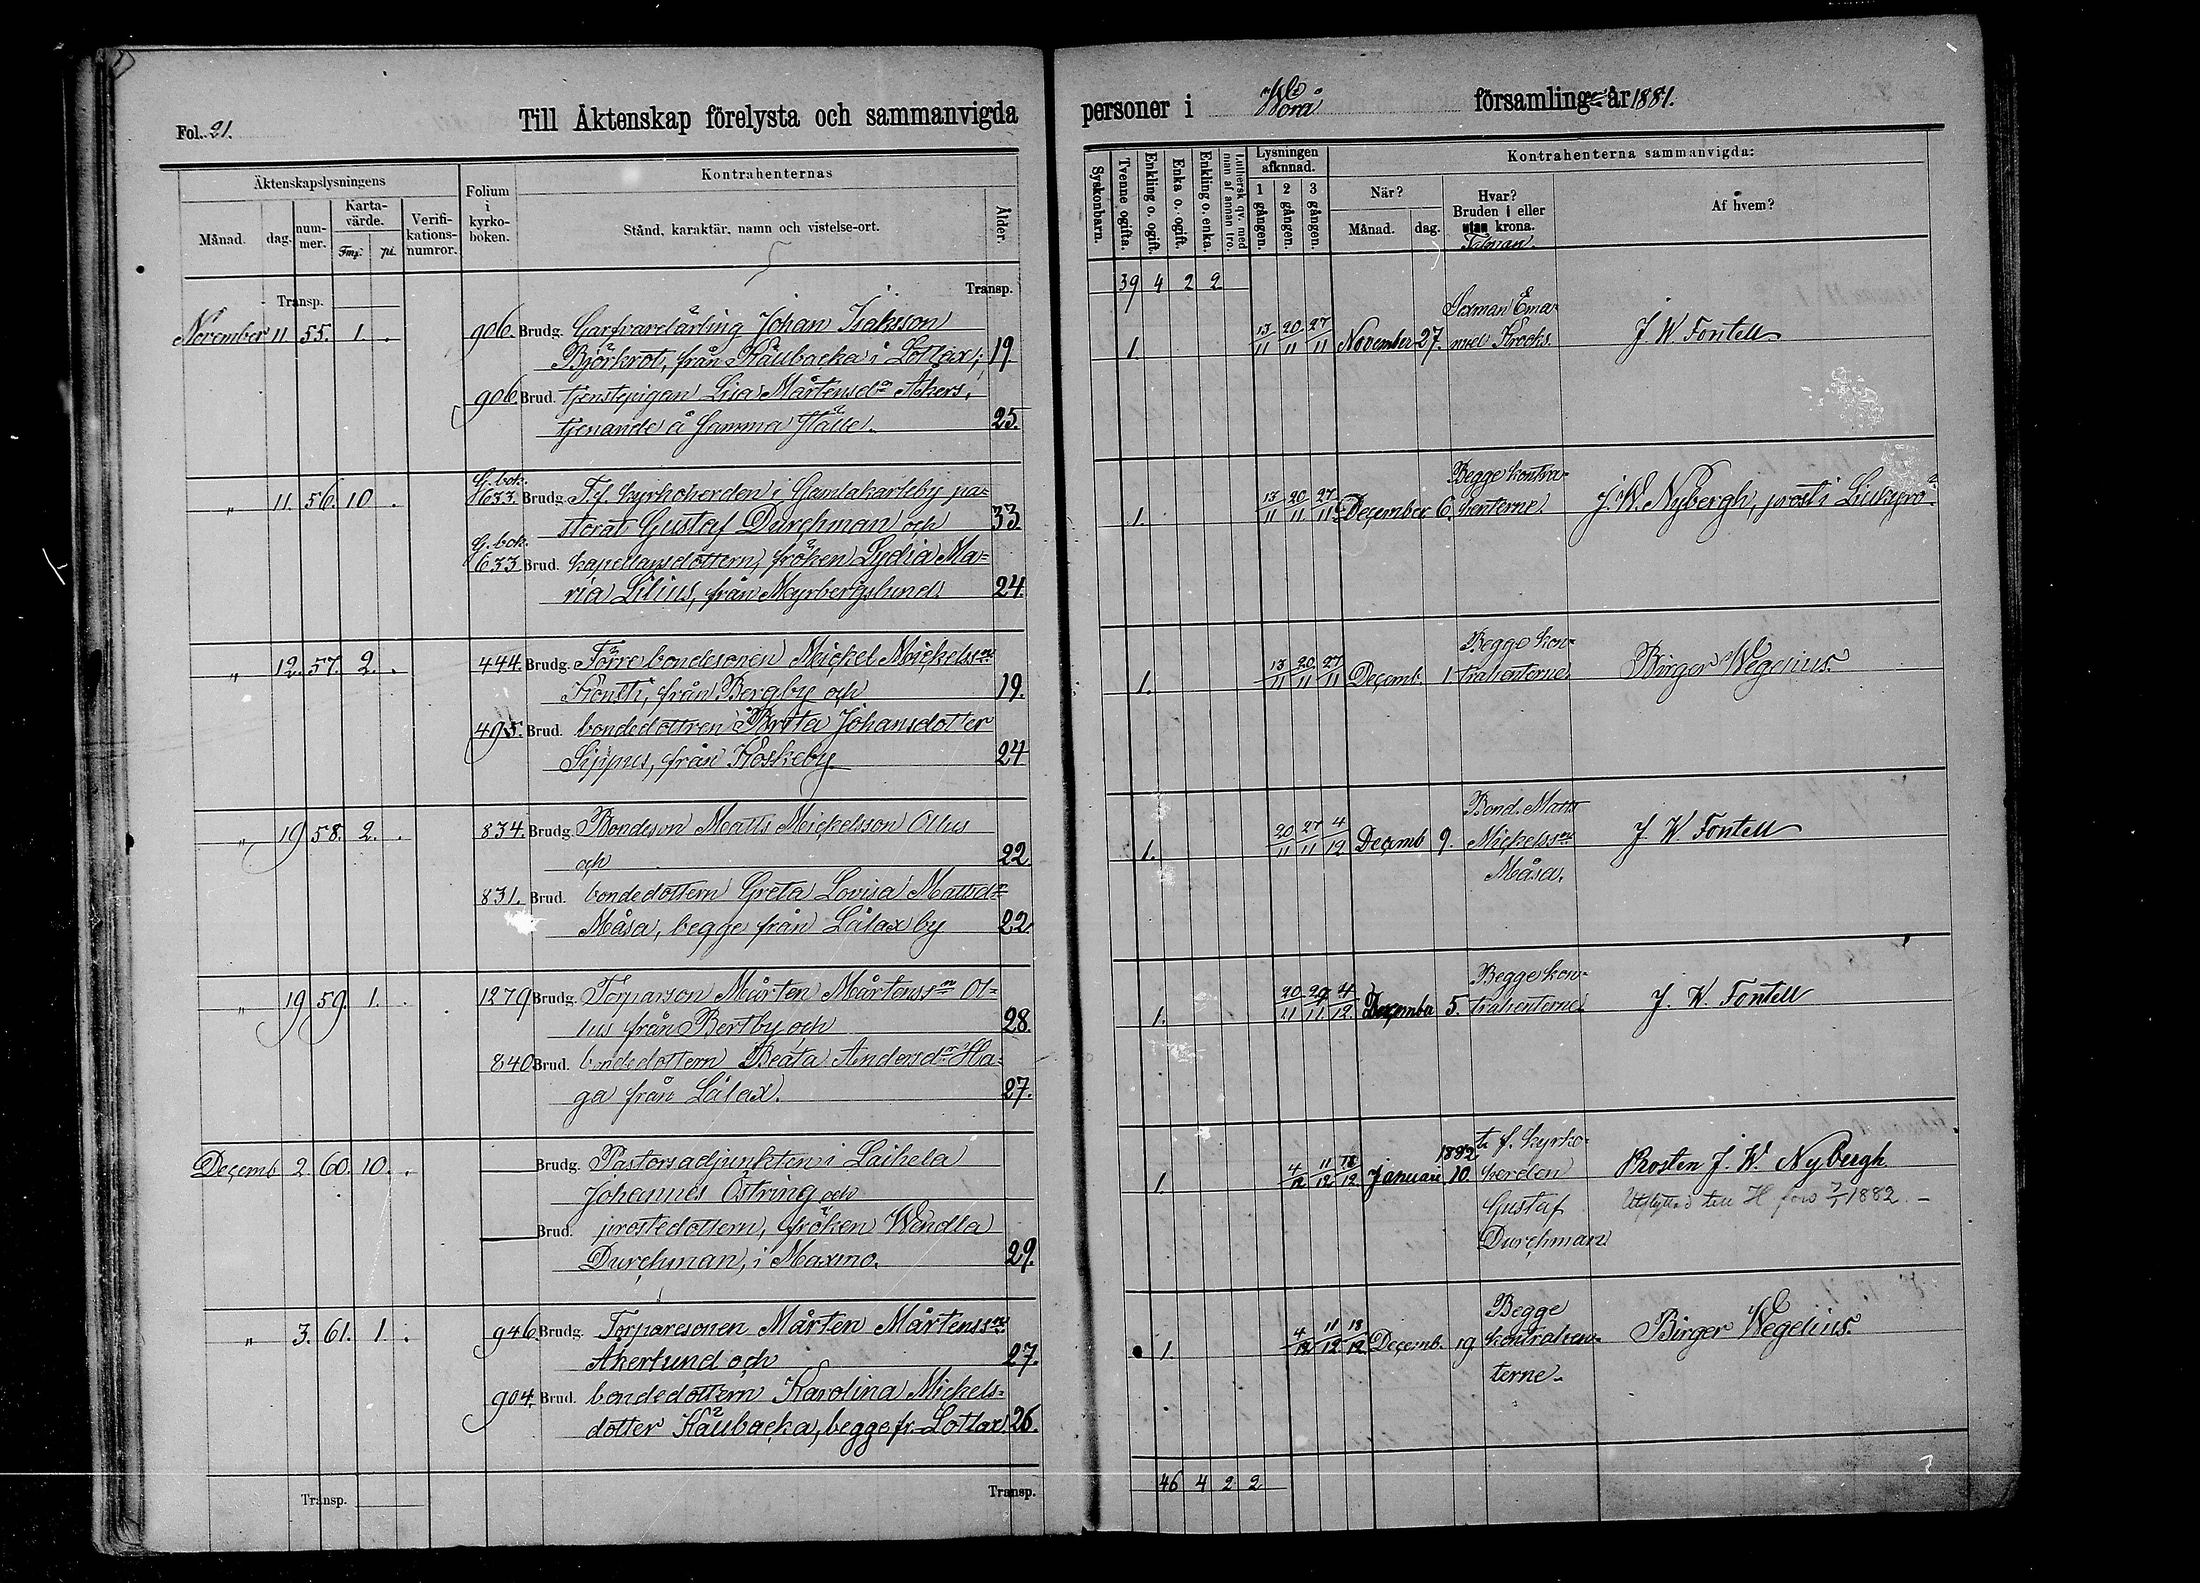 Fol. 21.
Till Äktenskap förelysta och sammanvigda
personer i Wörå församling år 1881.
Äktenskapslysningens
Månad. dag. nummer. Kartavärde. Fmg. pi. Verifikationsnumror.
Folium i kyrkoboken.
Kontrahenternas
Stånd, karaktär, namn och vistelse-ort.
Ålder.
Syskonbarn. Tvenne ogifta. Enkling o. ogift. Enka o. ogift. Enkling o. enka. Luthersk qv. med man af annan tro.
Lysningen afkunnad.
1 gången. 2 gången. 3 gången.
Kontrahenterna sammanvigda:
När? Månad. dag.
Hvar? Bruden i eller utan krona.
Af hvem?
Transp. Transp. 39 4 2 2
November 11 55. 1. 906. Brudg. Garfvarelärling Johan Isaksson
Björkrot, från Kåubacka i Lotlax; 19.
906. Brud. tjenstepigan Lisa Mårtensdr Åkers,
tjenande å samma ställe. 25.
1. 13/11 20/11 27/11 November 27. Sexman Emanuel Krooks. J W Fontell
" 11. 56. 10. G. bok. 633. Brudg. T.f. kyrkoherden i Gamlakarleby pa-
storat Gustaf Durchman och 33
G. bok. 633 Brud. kapellansdottern, fröken Lydia Ma-
ria Lilius, från Myrbergslund. 24
1. 13/11 20/11 27/11 December 6. Begge kontrahenterne. J. W. Nybergh, prost i
" 12. 57. 2. 444. Brudg. Förre bondesonen Mickel Mickelssn
Konsti, från Bergby och 19.
495. Brud. bondedottren Brita Johansdotter
Sippus, från Koskeby 24
1. 13/11 20/11 27/11 Decemb. 1 Begge kontrahenterne. Birger Wegelius.
" 19 58. 2. 834. Brudg. Bondeson Matts Mickelsson Ollus
och 22
831. Brud. bondedottern Greta Lovisa Mattsdr
Måsa, begge från Lålax by 22
1. 20/11 27/11 4/12 Decemb 9. Bond. Matts Mickelssn Måsa. J W Fontell
" 19 59. 1. 1279 Brudg. Torparson Mårten Mårtenssn Ol-
lus från Bertby och 28.
840 Brud. bondedottern Beata Andersdr Ha-
ga från Lålax. 27.
1. 20/11 27/11 4/12. December 5. Begge kontrahenterne. J. W. Fontell
Decemb 2. 60. 10. Brudg. Pastorsadjunkten i Laihela
Johannes Östring och
Brud. prostedottern, fröken Wendla
Durchman, i Maxmo. 29.
1. 4/12. 11/12. 18/12. 1882 Januari 10. t. f. kyrkoherden Gustaf Durchman. Prosten J. W. Nybergh
1882.
" 3. 61. 1. 946. Brudg. Torparesonen Mårten Mårtenssn
Åkerlund och 27.
904. Brud. bondedottern Karolina Mickels-
dotter Kåubacka, begge fr. Lotlax. 26.
1. 4/12 11/12 18/12 Decemb. 19. Begge kontrahenterne. Birger Wegelius.
Transp. Transp. 46 4 2 2